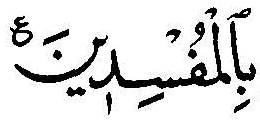 بِٱلْمُفْسِدِينَ ࣖ